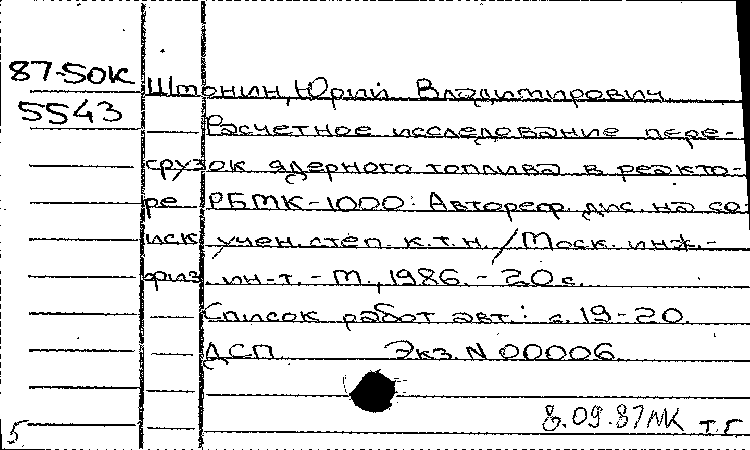 87-50К
5543
Штонин, Юрий Владимирович
Расчетное исследование пере-
грузок ядерного топлива в реакто-
ре РБМК-1000: Автореф. дис. на со-
иск. учен. степ. к.т.н. / Моск. инж.-
физ. ин-т. - М., 1986. - 20 с.
Список работ авт.: с. 19-20.
ДСП Экз. N 00006.
8.09.87 МК т.г
5